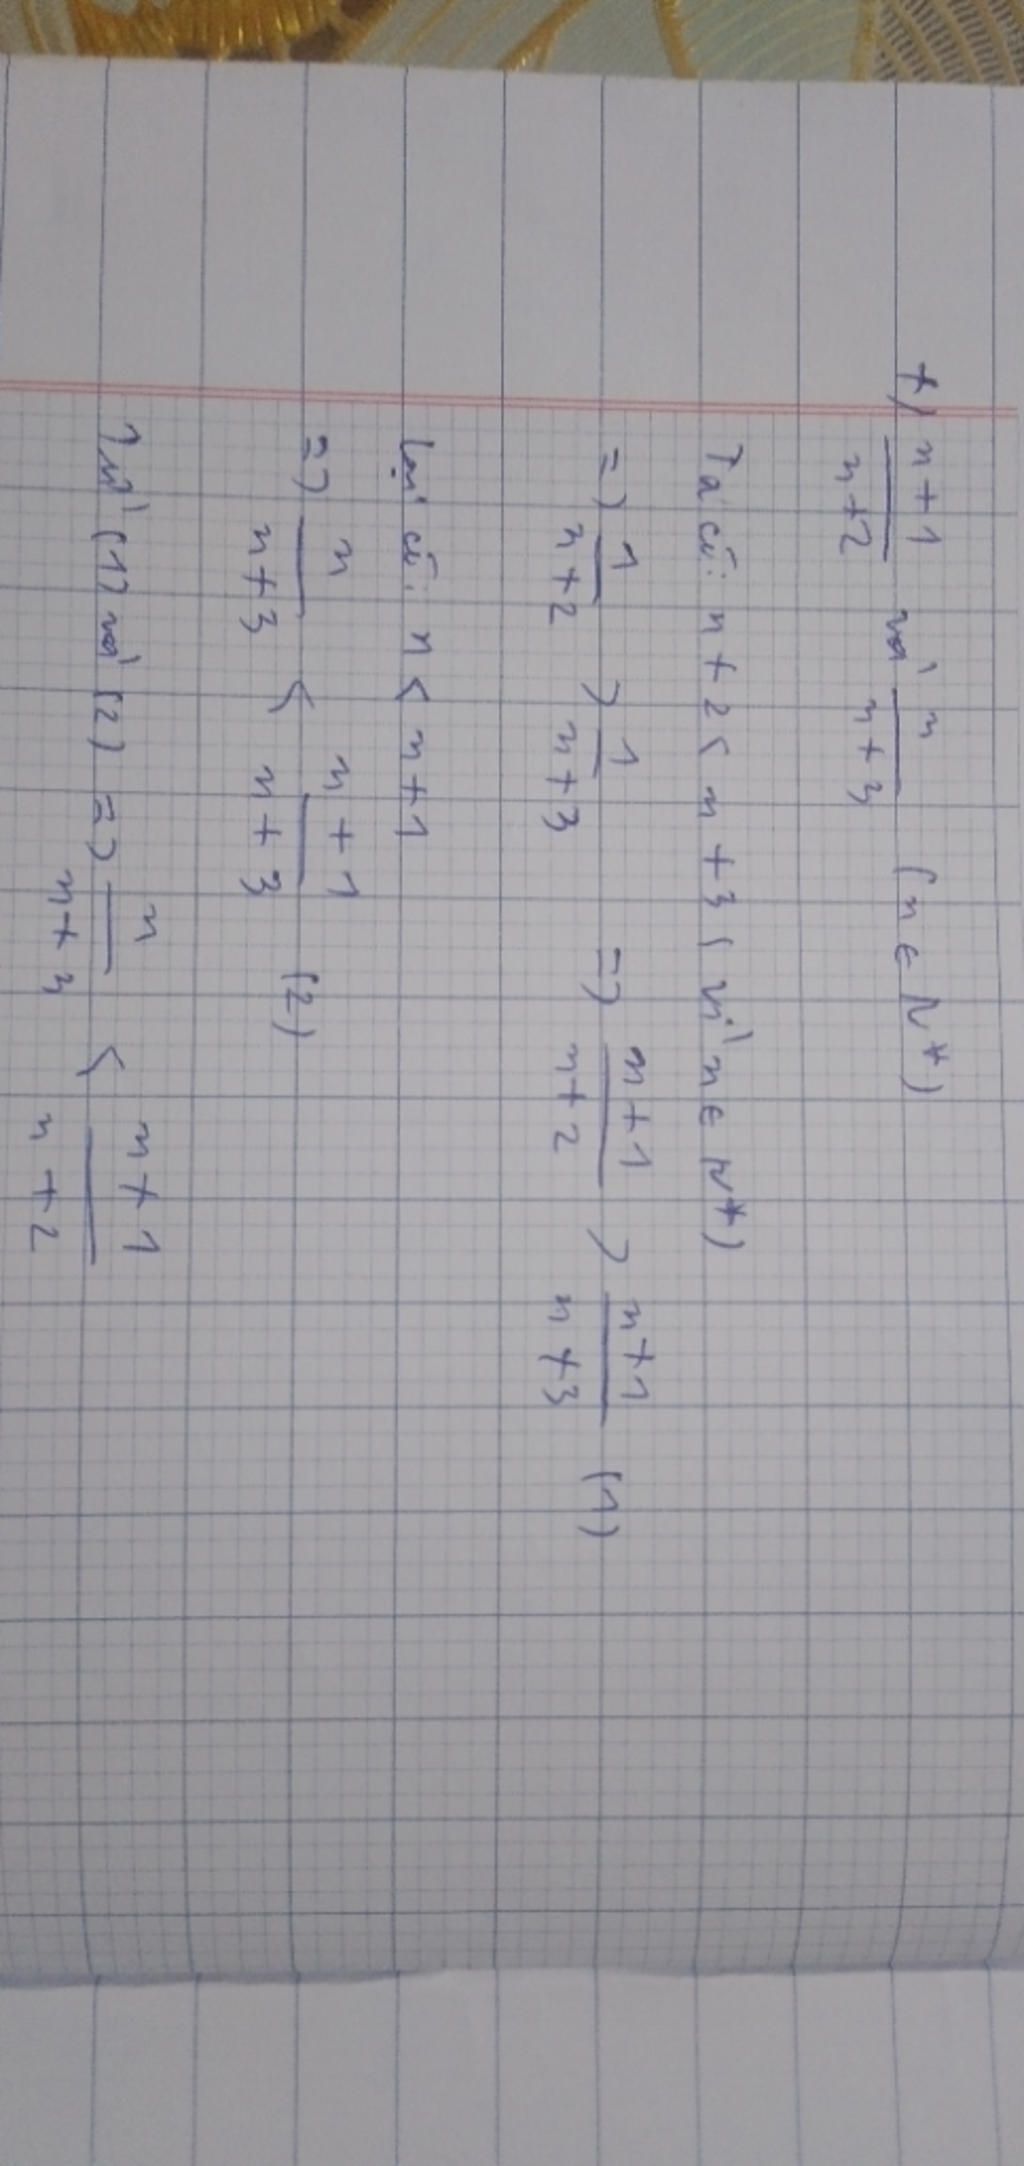 *) n+1/n+2 và n/n+3 (n ∈ N*)
Ta có: n+2 < n+3 (vì n ∈ N*)
=> 1/n+2 > 1/n+3 => n+1/n+2 > n+1/n+3 (1)
Lại có: n < n+1
=> n/n+3 < n+1/n+3 (2)
Từ (1) và (2) => n/n+3 < n+1/n+2